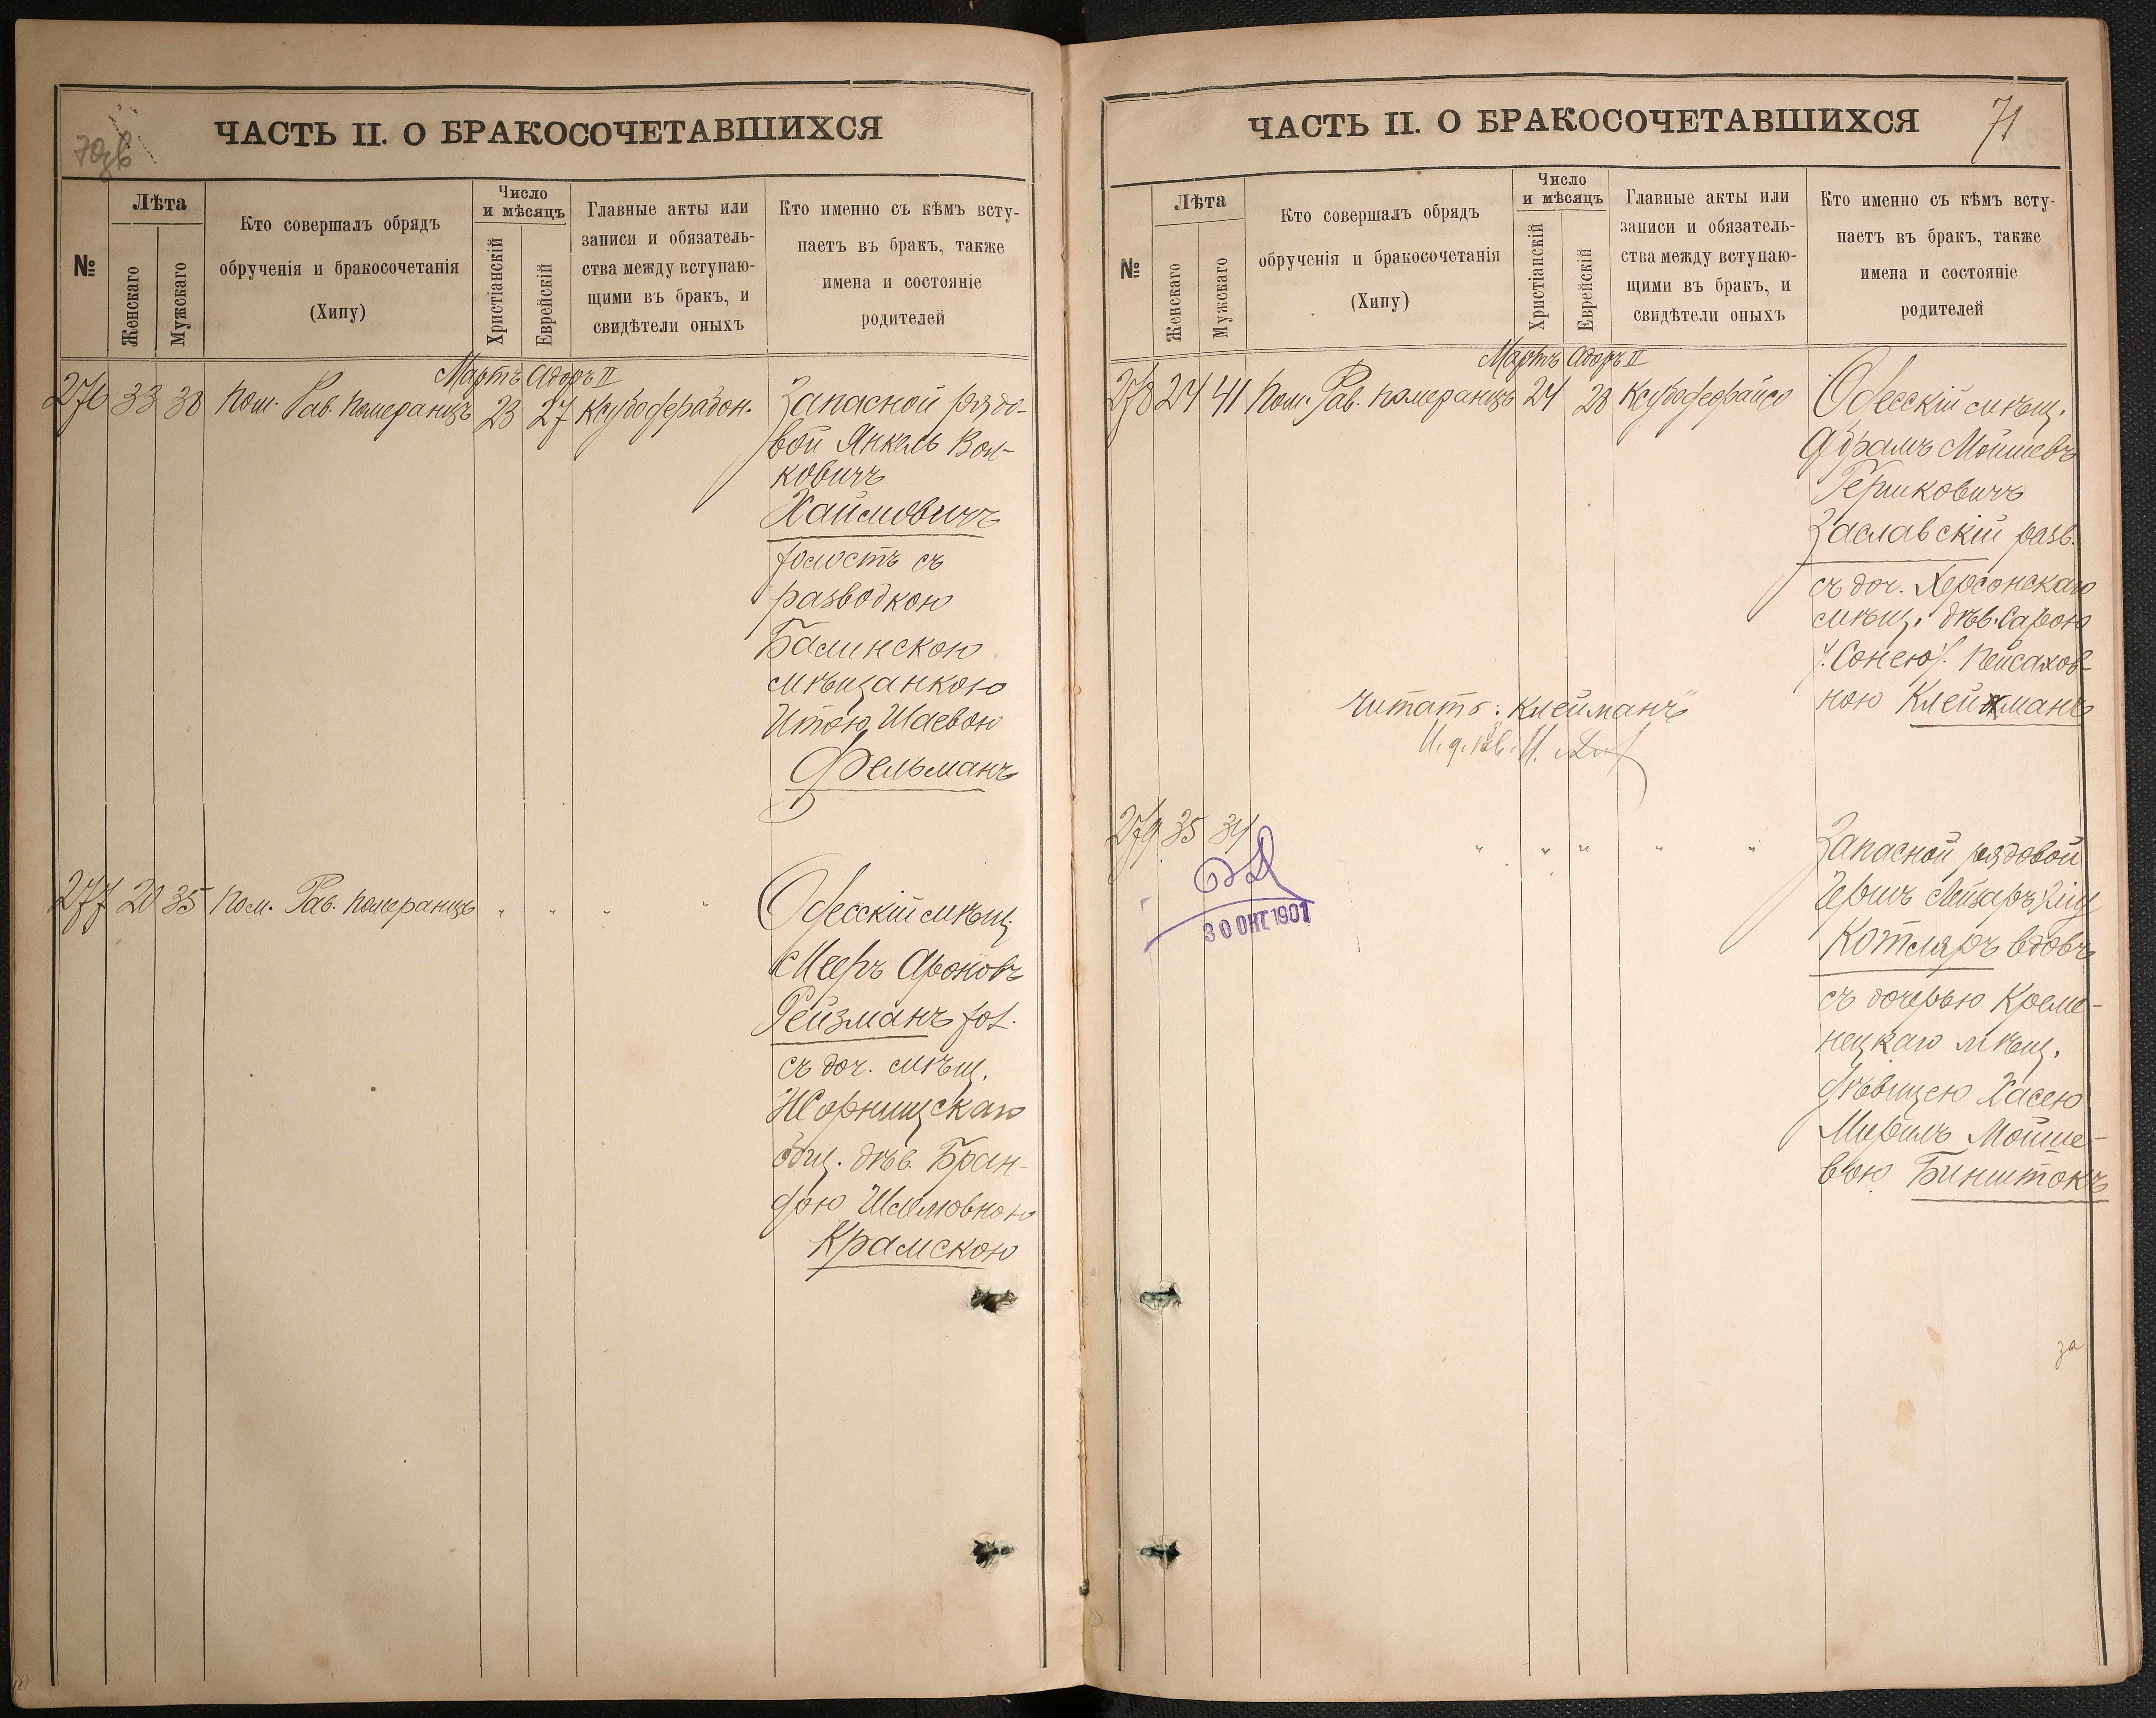 70об
ЧАСТЬ II. О БРАКОСОЧЕТАВШИХСЯ
№
Лѣта
Женскаго
Мужскаго
Кто совершалъ обрядъ
обрученія и бракосочетанія
(Хипу)
Число
и мѣсяцъ
Христіанскій
Еврейскій
Главные акты или
записи и обязатель-
ства между вступаю-
щими въ бракъ, и
свидѣтели оныхъ
Кто именно съ кѣмъ всту-
паетъ въ бракъ, также
имена и состояніе
родителей
Мартъ Адоръ II
276 33 38 Пом. Рав. Померанцъ 23 27
Запасной рядо-
вой Янкель Вол-
ковичъ
Хаимовичъ
холостъ съ
разводкою
Балинскою
мѣщанкою
Итою Шаевою
Фельманъ
277 20 35 Пом. Рав. Померанцъ " " " "
Одесскій мѣщ.
Мееръ Ароновъ
Рейзманъ хол.
съ доч. мѣщ.
Жорнищскаго
общ. дѣв. Бран-
дою Шлемовною
Крамскою
ЧАСТЬ II. О БРАКОСОЧЕТАВШИХСЯ
71
№
Лѣта
Женскаго
Мужскаго
Кто совершалъ обрядъ
обрученія и бракосочетанія
(Хипу)
Число
и мѣсяцъ
Христіанскій
Еврейскій
Главные акты или
записи и обязатель-
ства между вступаю-
щими въ бракъ, и
свидѣтели оныхъ
Кто именно съ кѣмъ всту-
паетъ въ бракъ, также
имена и состояніе
родителей
Мартъ Адоръ II
278 24 41 Пом. Рав. Померанцъ 24 28
Одесскій мѣщ.
Абрамъ Мошиевъ
Гершковичъ
Заславскій разв.
съ доч. Херсонскаго
мѣщ. дѣв. Сарою
/:Сонею:/ Пейсахов-
ною Клейманъ
Читать: "Клейманъ"
279 35 34 " " " " "
30 ОКТ 1901
Запасной рядовой
Гершъ Лейзаръ
Котляръ вдовъ
съ дочерью Креме-
нецкаго мѣщ.
дѣвицею Хасею
Мириль Мойше-
вою Бинштокъ
за